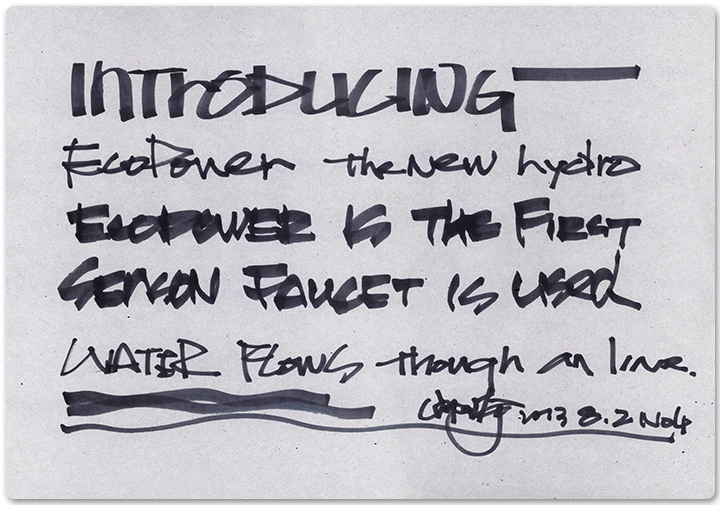 INTRODUCING
EcoPower the new hydro
ECOPOWER IS THE FIRST
SENSON FAUCET IS USED
WATER FLOWS though an line.
2013 8.2 No4